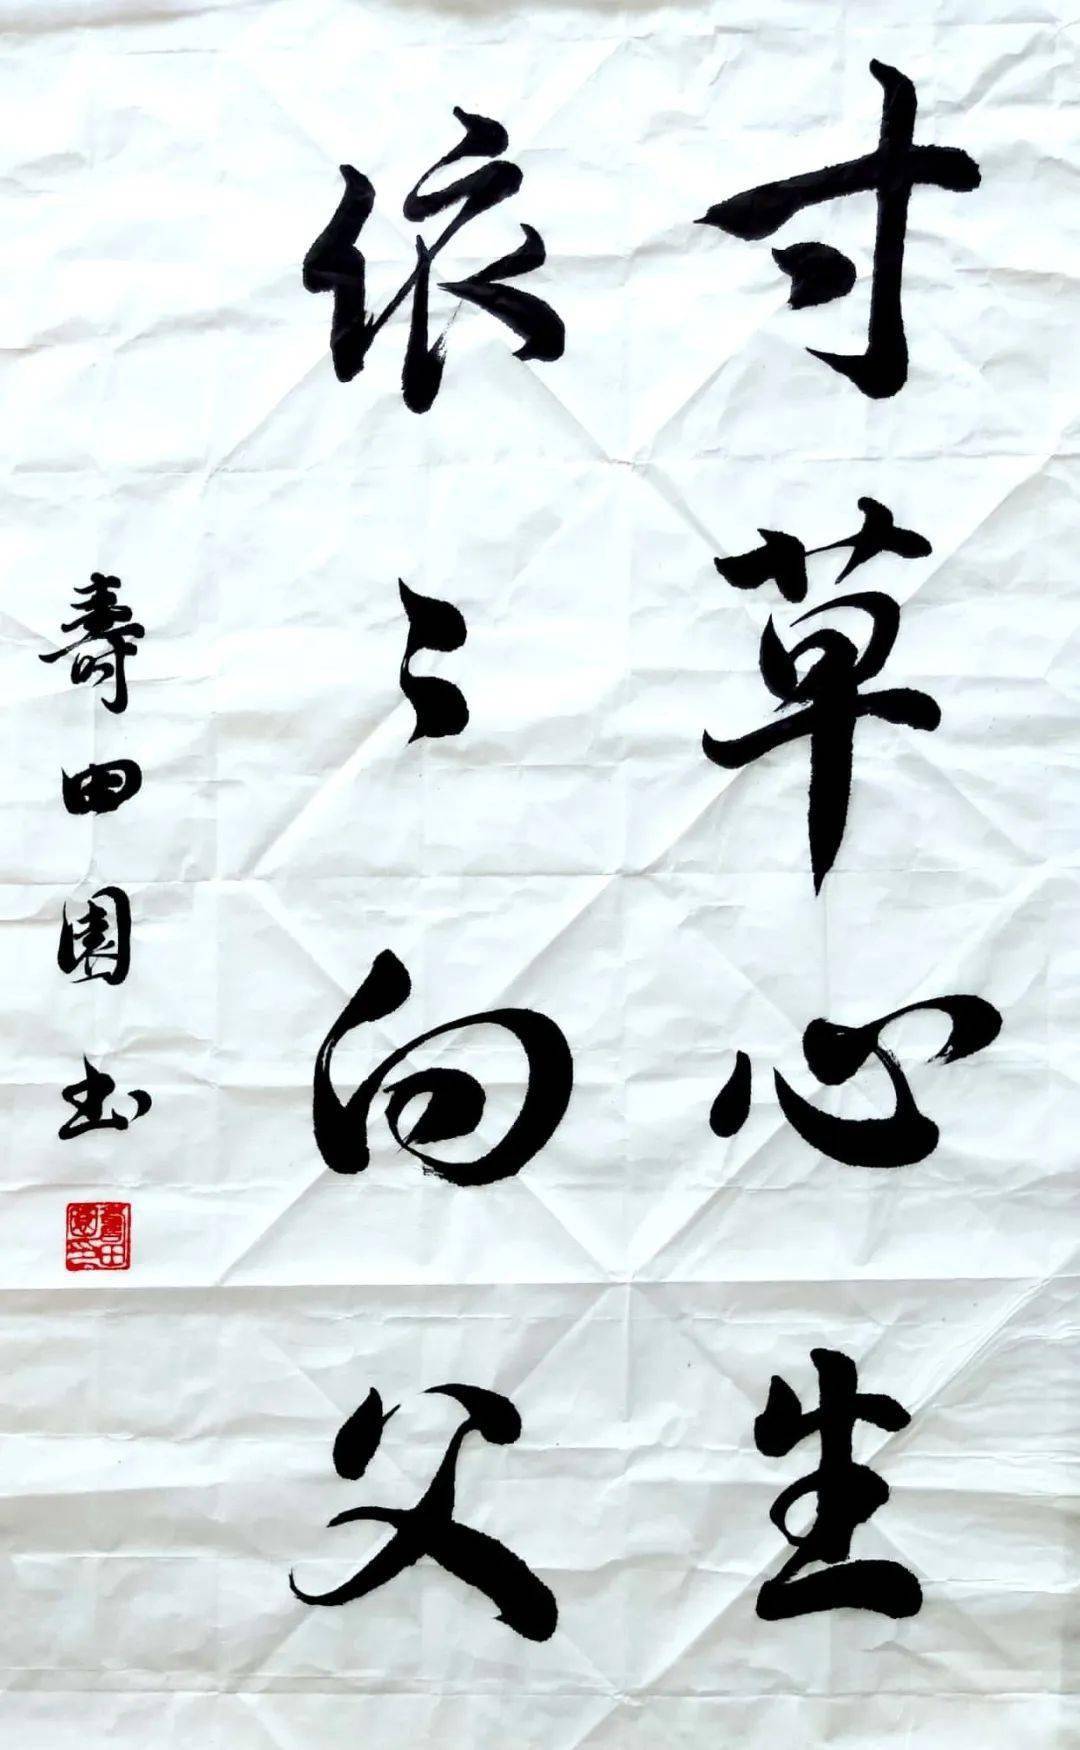 寸草心生
依〻向父
壽田園书